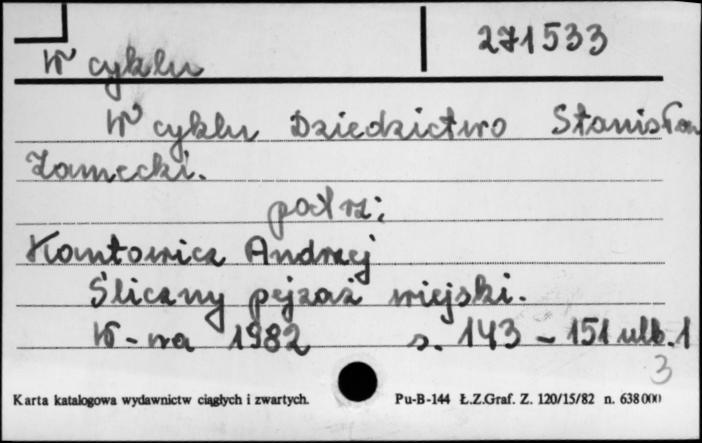 271533
W cyklu
W cyklu Dziedzictwo Stanisław
Zamecki.
patrz:
Kantowicz Andrzej
Śliczny pejzaż wiejski.
W-wa 1982 s. 143 - 151 ulb. 1
3
Karta katalogowa wydawnictw ciągłych i zwartych. Pu-B-144 Ł.Z.Graf. Z. 120/15/82 n. 638000